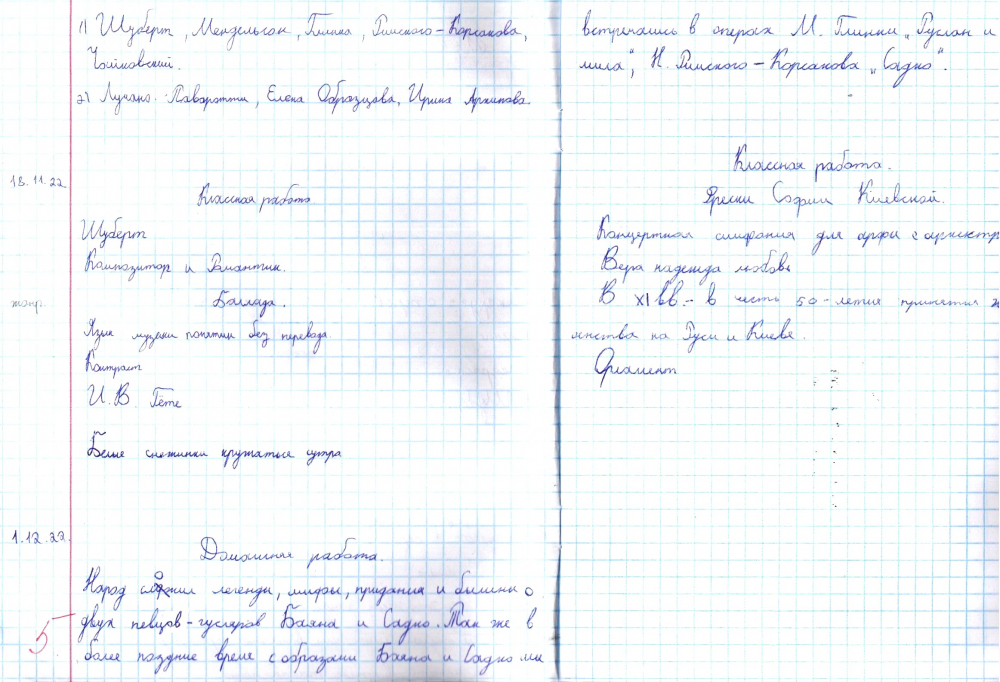 1) Шуберт, Мендельсон, Глинка, Римского-Корсакова,
Чайковский.
2) Лучано Паваротти, Елена Образцова, Ирина Архипова
18.11.22
Классная работа
Шуберт
Композитор и Романтик.
жанр.
Баллада.
Язык музыки понятен без перевода
Контраст
И. В. Гёте
Белые снежинки кружатся сутра
1.12.22.
Домашняя работа.
Народ сложил легенды, мифы, придания и былины о
двух певцов-гусляров Баяна и Садко. Так же в
5
более поздние время с образами Баяна и Садко мы
встречаись в операх М. Глинки „Руслан и
мила", Н. Римского-Корсакова „Садко".
Классная работа.
Фрески Софии Киевской.
Концертная симфония для арфы с аркестр
Вера надежда любовь
В XI вв. - в честь 50-летия принятия х
янства на Руси и Киеве.
Орнамент